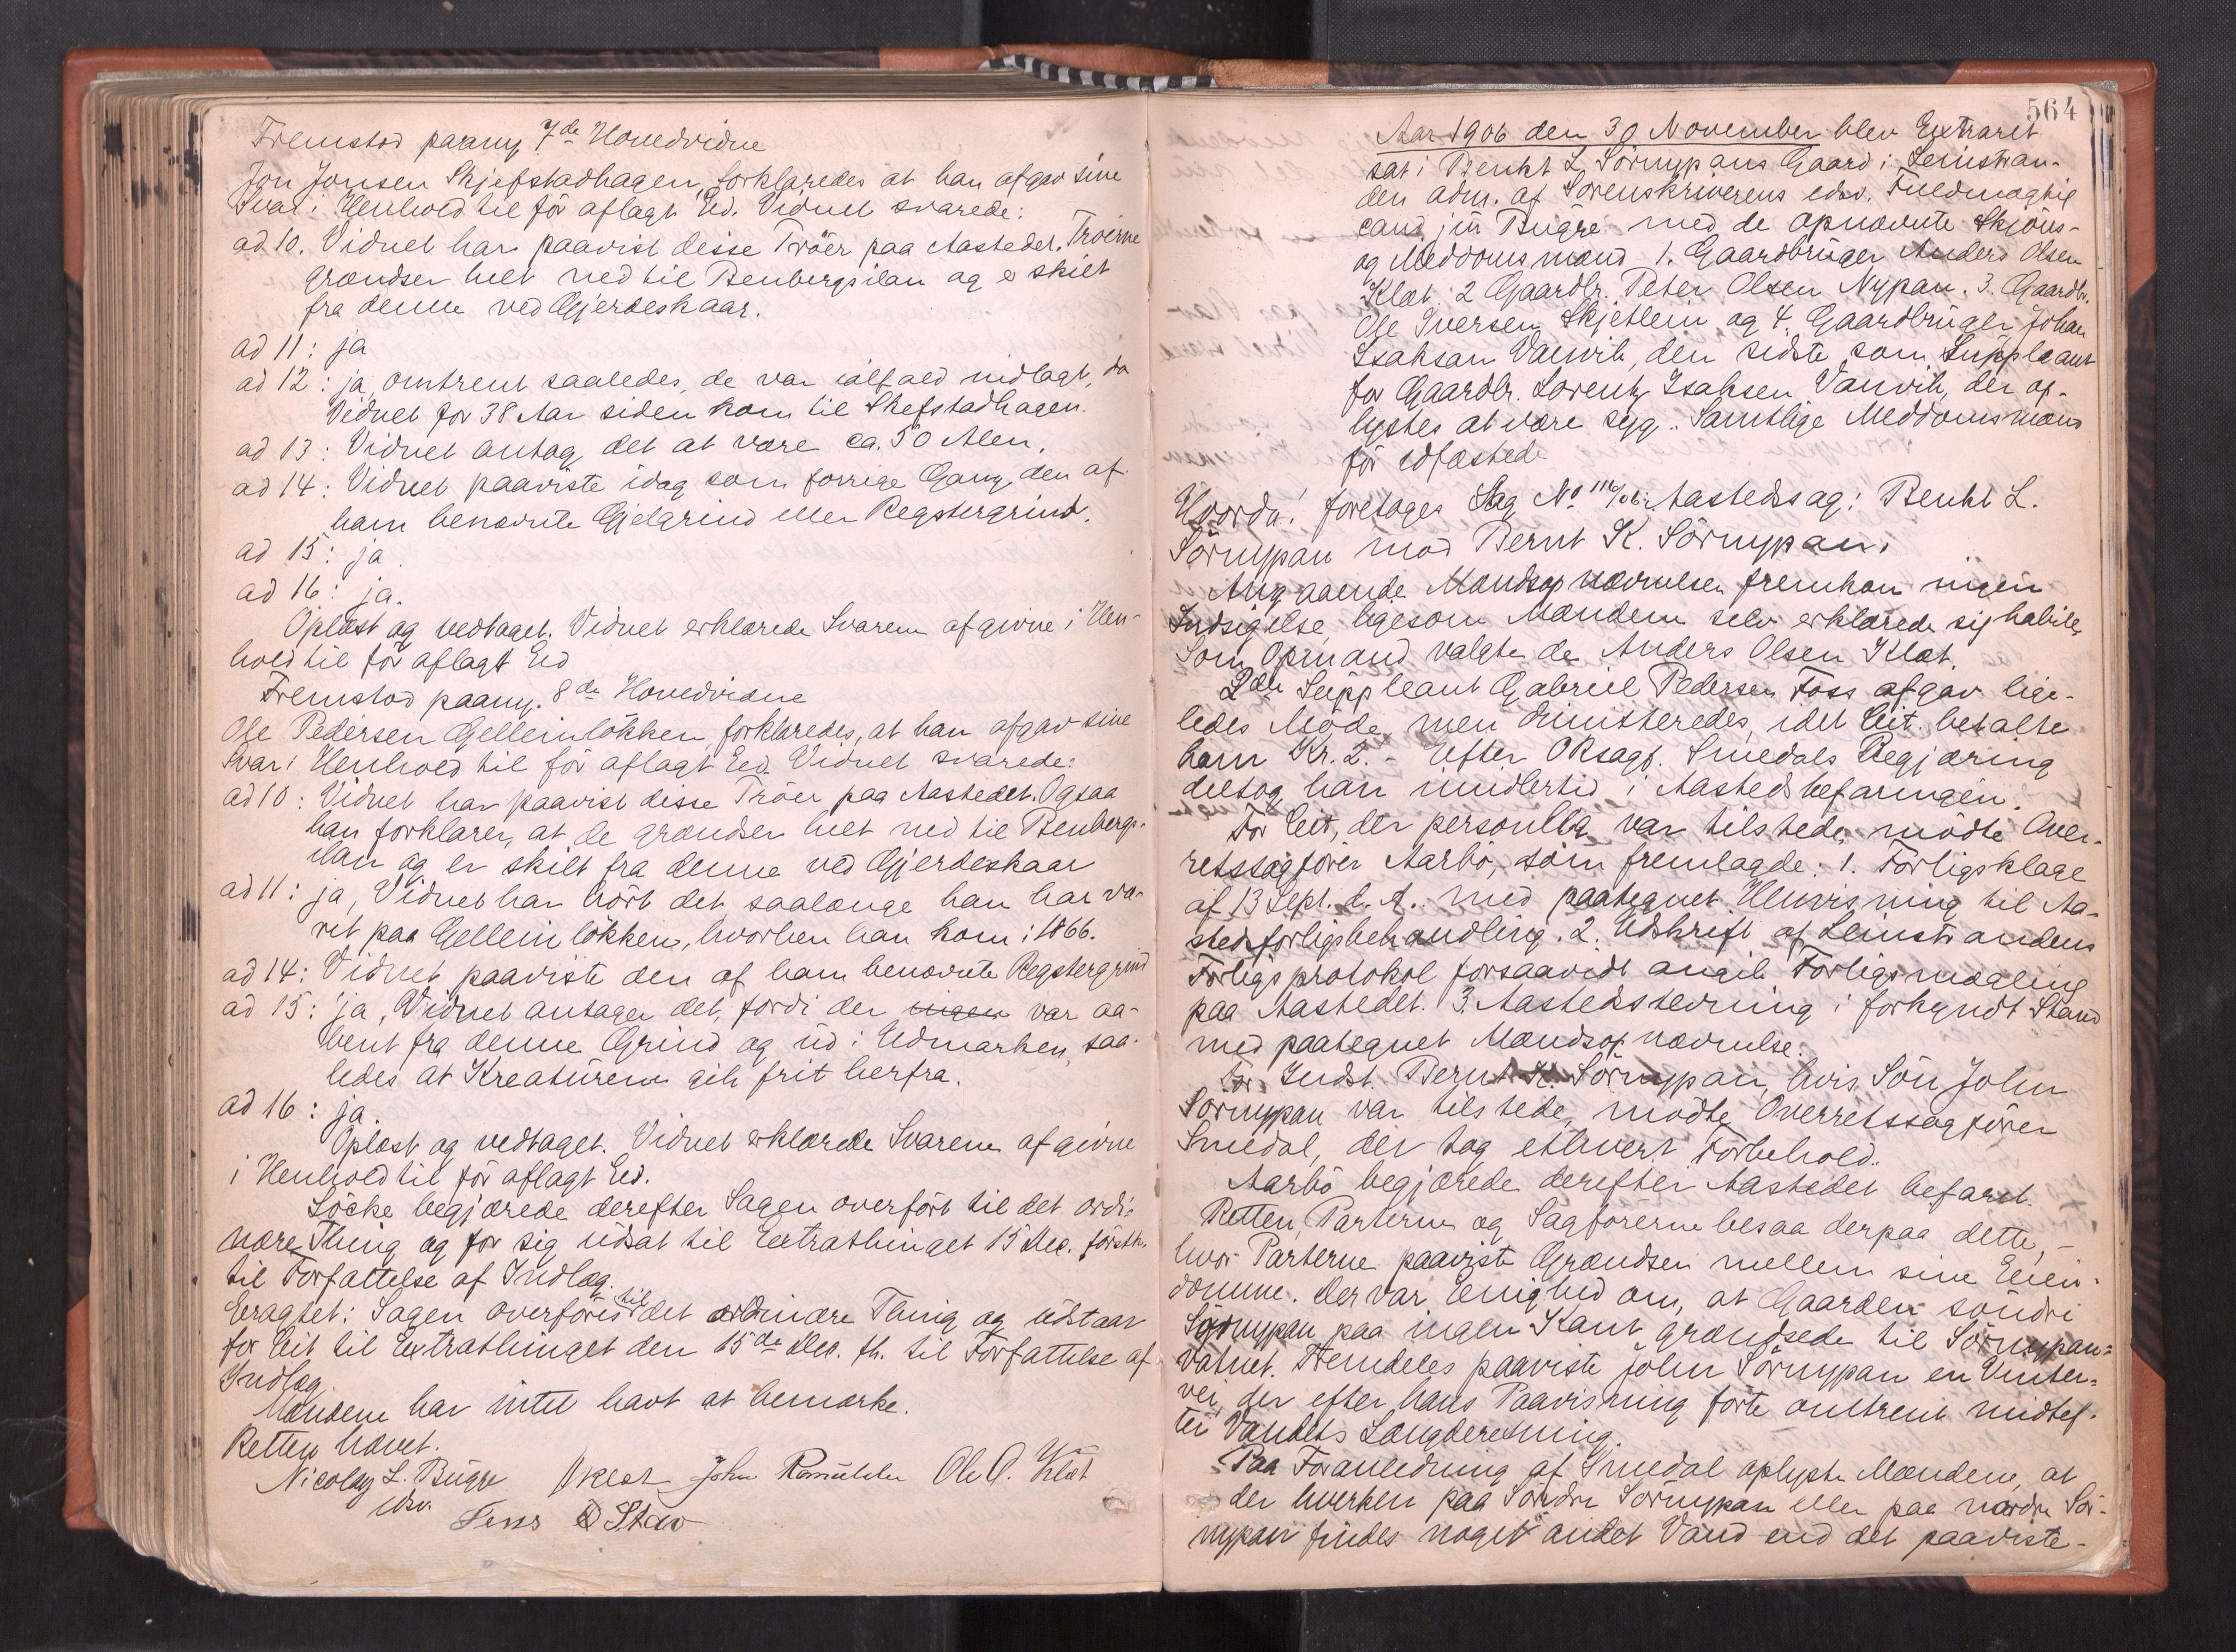 Fremstod paany 7de Hovedvidne
Jon Jonsen Skjefstadhagen, forklaredes at han afgav sine
Svar i Henhold til før aflagt Ed. Vidnet svarede:
ad 10. Vidnet har paavist disse Trøer paa Aastedet. Trøerne
grændser helt ned til Benbergsilan og er skilt
fra denne ved Gjerdeskaar.
ad 11: ja
ad 12: ja, omtrent saaledes, de var ialfald nidlagt, da
Vidnet for 38 Aar siden kom til Skefstadhagen.
ad 13: Vidnet antog det at være ca. 50 Alen.
ad 14: Vidnet paaviste idag som forrige Gang den af
ham benævnte Gjelgrind eller Regstergrind.
ad 15: ja.
ad 16: ja.
Oplæst og vedtaget. Vidnet erklærede Svarene afgivne i Hen-
hold til før aflagt Ed
Fremstod paany. 8de Hovedvidne
Ole Pedersen Gelleinløkken, forklaredes, at han afgav sine
Svar i Henhold til før aflagt Ed. Vidnet svarede:
ad 10: Vidnet har paavist disse Trøer paa Aastedet. Ogsaa
han forklarer, at de grændser helt ned til Benbergs-
ilan og er skilt fra denne ved Gjerdeskaar
ad 11: ja, Vidnet har hørt det saalænge han har væ-
ret paa Gelleinløkken, hvorhen han kom i 1866.
ad 14: Vidnet paaviste den af ham benævnte Regstergrind
ad 15: ja, Vidnet antager det, fordi der ingen var aa-
bent fra denne Grind og ud i Udmarken, saa-
ledes at Kreaturene gik frit herfra.
ad 16: ja.
Oplæst og vedtaget. Vidnet erklærede Svarene afgivne
i Henhold til før aflagt Ed.
Løcke begjærede derefter Sagen overført til det ordi-
nære Thing og for sig udsat til Extrathinget 15 Dec. førstk.
til Forfattelse af Indlæg.
Eragtet: Sagen overføres til det ordinære Thing og udstaar
for Cit til Extrathinget den 15de Dec. fk. til Forfattelse af
Indlæg.
Mændene har intet havt at bemærke.
Retten hævet.
Nicolay L. Bugge John Ole O. Klæt
edsv.
Jens Stav
564
Aar 1906 den 30 November blev Extraret
sat i Benkt L Sørnypans Gaard i Leinstran-
den adm. af Sorenskriverens edsv. Fuldmægtig
cand. jur Bugge med de opnævnte Skjøns-
og Meddomsmænd 1. Gaardbruger Anders Olsen
Klæt. 2 Gaardbr. Peter Olsen Nypan. 3. Gaardbr.
Ole Iversen Skjetlein og 4. Gaardbruger Johan
Isaksen Vanvik, den sidste som Suppleant
for Gaardbr. Lorentz Isaksen Vanvik, der op-
lystes at være syg. Samtlige Meddomsmænd
før edfæstede
Hvorda! foretoges Sag No 116/06: Aastedssag: Benkt L.
Sørnypan mod Bernt K. Sørnypan.
Angaaende Mandsopnævnelsen fremkom ingen
Indsigelse ligesom Mændene selv erklærede sig habile.
Som Opmand valgte de Anders Olsen Klæt.
2den Suppleant Gabriel Pedersen Foss afgav lige-
ledes Møde, men dimitteredes, idet Cit. betalte
ham Kr. 2.- Efter ORsagf. Smedals Begjæring
deltog han imidlertid i Aastedsbefaringen.
For Cit, der personlig var tilstede, mødte Over-
retssagfører Aarbø, som fremlagde: 1. Forligsklage
af 13 Sept. d. A. med paategnet Henvisning til Aa-
stedsforligsbehandling. 2. Udskrift af Leinstrandens
Forligsprotokol forsaavidt angik Forligsmægling
paa Aastedet. 3. Aastedsstevning i forkyndt Stand
med paategnet Mandsopnævnelse.
For Indst. Bernt K. Sørnypan, hvis Søn John
Sørnypan var tilstede, mødte Overretssagfører
Smedal, der tog ethvert Forbehold.
Aarbø begjærede derefter Aastedet befaret.
Retten, Parterne og Sagførerne besaa derpaa dette, -
hvor Parterne paaviste Grændsen mellem sine Eien-
domme. Der var Enighed om, at Gaarden søndre
Sørnypan paa ingen Kant grændsede til Sørnypan-
vatnet. Fremdeles paaviste John Sørnypan en Vinter-
vei, der efter hans Paavisning førte omtrent midtef-
ter Vandets Længderetning.
Paa Foranledning af Smedal oplyste Mændene, at
der hverken paa Søndre Sørnypan eller paa nordre Sør-
nypan findes noget andet Vand end det paaviste-